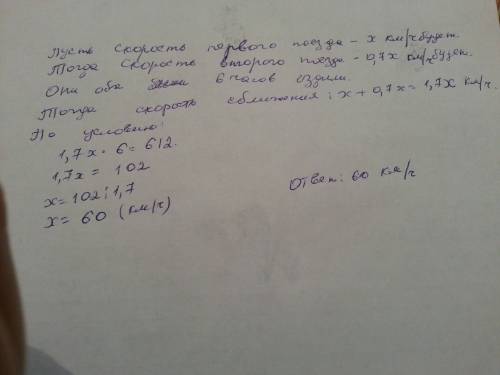 Пусть скорость первого поезда - x км/ч будет.
Тогда скорость второго поезда - 0,7x км/ч будет.
Они оба 6 часов ездили.
Тогда скорость сближения: x + 0,7x = 1,7x км/ч.
По условию:
1,7x · 6 = 612.
1,7x = 102
x = 102 : 1,7
x = 60 (км/ч)
Ответ: 60 км/ч